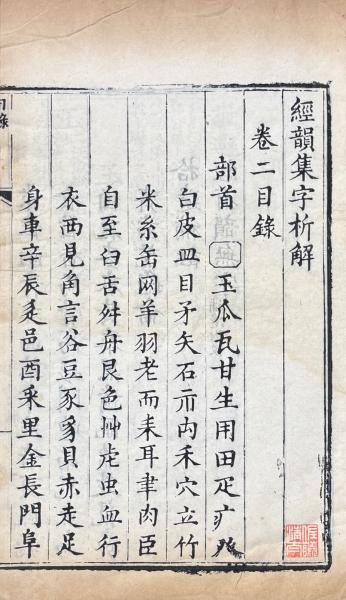 經韻集字析解
卷二目錄
部首 玉瓜瓦甘生用田疋疒癶
白皮皿目矛矢石示禸禾穴立竹
米糸缶网羊羽老而耒耳聿肉臣
自至臼舌舛舟艮色艸虍虫血行
衣西見角言谷豆豕豸貝赤走足
身車辛辰辵邑酉釆里金長門阜
目錄